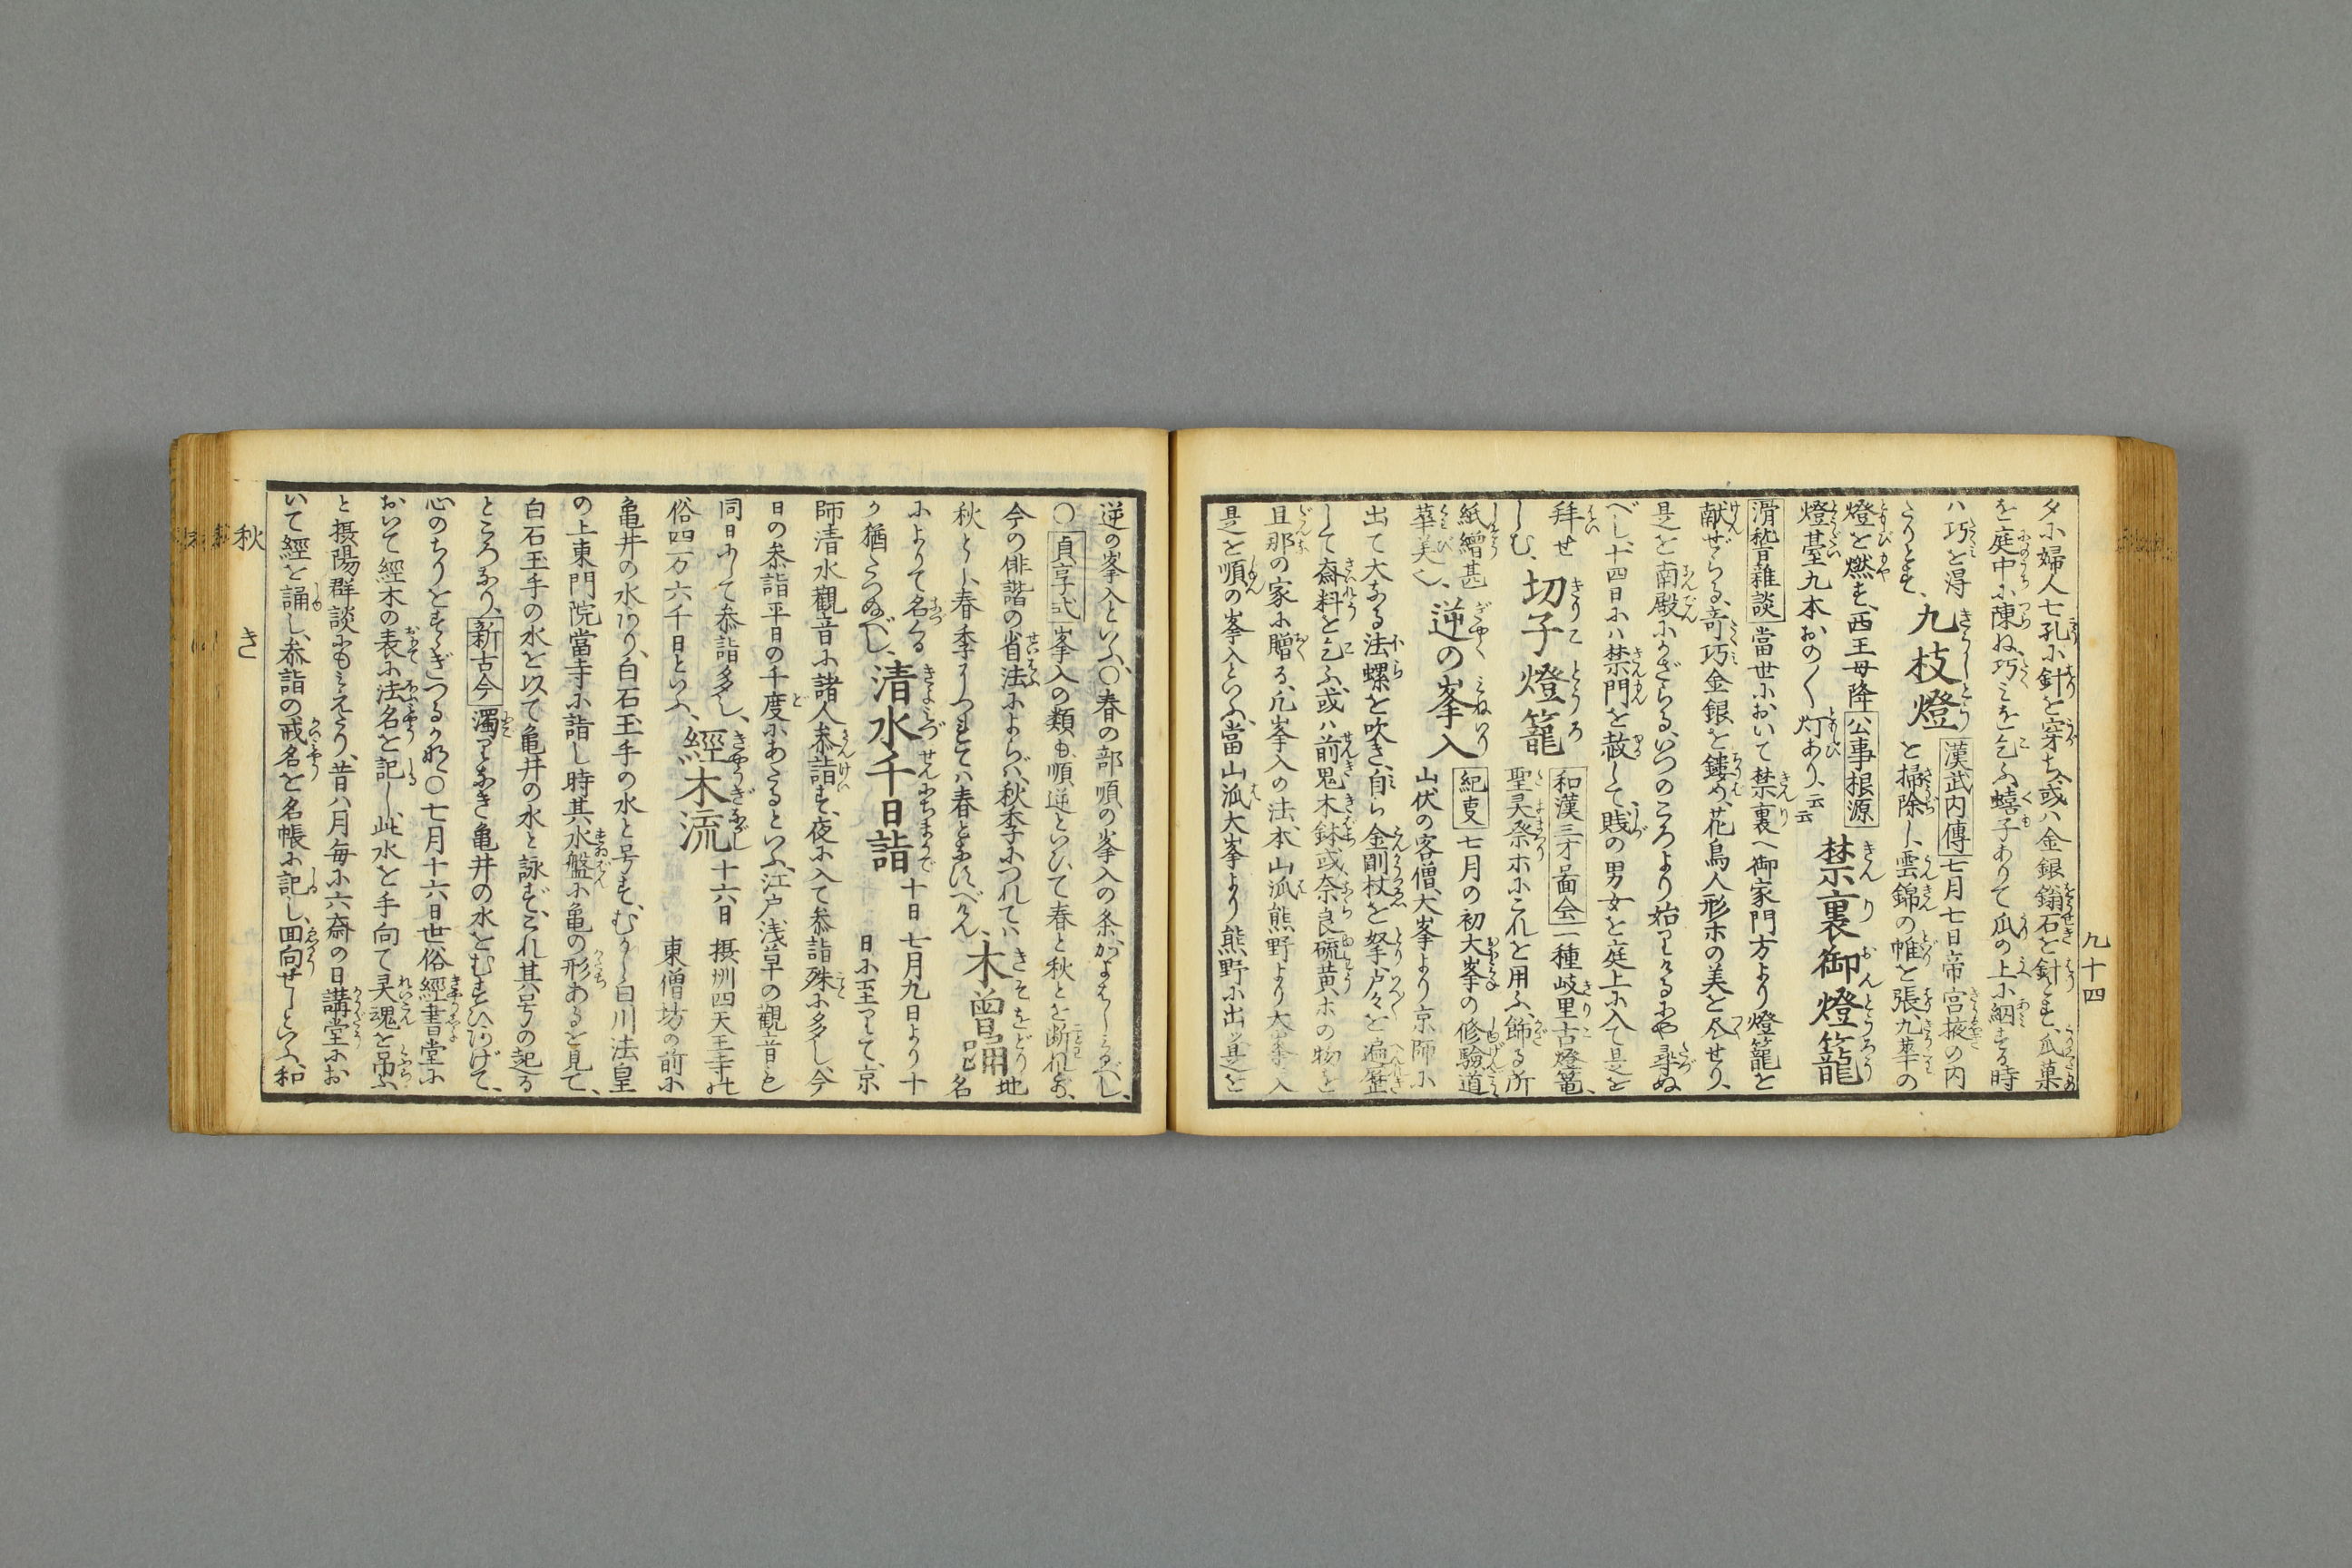 夕に婦人七孔に針を穿ち、或ハ金銀鍮石を針とす、瓜菓
を庭中に陳ね、巧みを乞ふ、蟢子ありて瓜の上に網する時
ハ巧を得
たりとす、
九枝燈
漢武内傳 七月七日帝宮掖の内
を掃除し、雲錦の帷を張、九華の
燈を燃す、西王母降
公事根源
燈臺九本おの〳〵灯あり、云云
禁裏御燈籠
滑稽雜談 當世において禁裏へ御家門方より燈籠を
献ぜらる、奇巧金銀を鏤め、花鳥人形ホの美を尽せり、
是を南殿にかざらる、いつのころより始りけるにや尋ぬ
べし、十四日にハ禁門を赦して賎の男女を庭上に入て是を
拜せ
しむ、
切子燈籠
和漢三才啚会 一種岐里古燈篭、
聖灵祭ホにこれを用ふ、飾る所
紙繒甚
華美也、
逆の峯入
紀事 七月の初大峯の修驗道
山伏の客僧、大峯より京師に
出て大なる法螺を吹き、自ら金剛杖を拏、戸々を遍歴
して斎料を乞ふ、或ハ前鬼木鉢或奈良硫黄ホの物を
且那の家に贈る、凡峯入の法、本山派熊野より大峯に入
是を順の峯入といふ、當山派大峯より熊野に出ッ是を
九十四
逆の峯入といふ、〇春の部順の峯入の条
〇貞享式 峯入の類も、順逆といひて春と秋とを断れば、
今の俳諧の省法によらバ、秋季につれてハ
秋とし、春季につれてハ春となすべけん、
木曽踊
地
名
によりて名くる
か猶たづぬべし、
清水千日詣
十日 七月九日より十
日に至りて、京
師清水觀音に諸人参詣す、夜に入て参詣殊に多し、今
日の参詣平日の千度にあたるといふ、江戸浅草の觀音も
同日にして参詣多し、
俗四万六千日といふ、
經木流
十六日 摂州四天王寺
東僧坊の前に
亀井の水あり、白石玉手の水と号す、むかし白川法皇
の上東門院當寺に詣し時其水盤に亀の形あるを見て、
白石玉手の水を以て亀井の水と詠ず、これ其号の起る
ところなり、新古今 濁りなき亀井の水をむすびあげて、
心のちりをすゝぎつるかな〇七月十六日世俗經書堂に
おいて經木の表に法名を記し、此水を手向て灵魂を吊ふ、
と摂陽群談にもみえたり、昔ハ月毎に六斎の日講堂にお
いて經を誦し、参詣の戒名を名帳に記し、回向せしといふ、和
秋
き